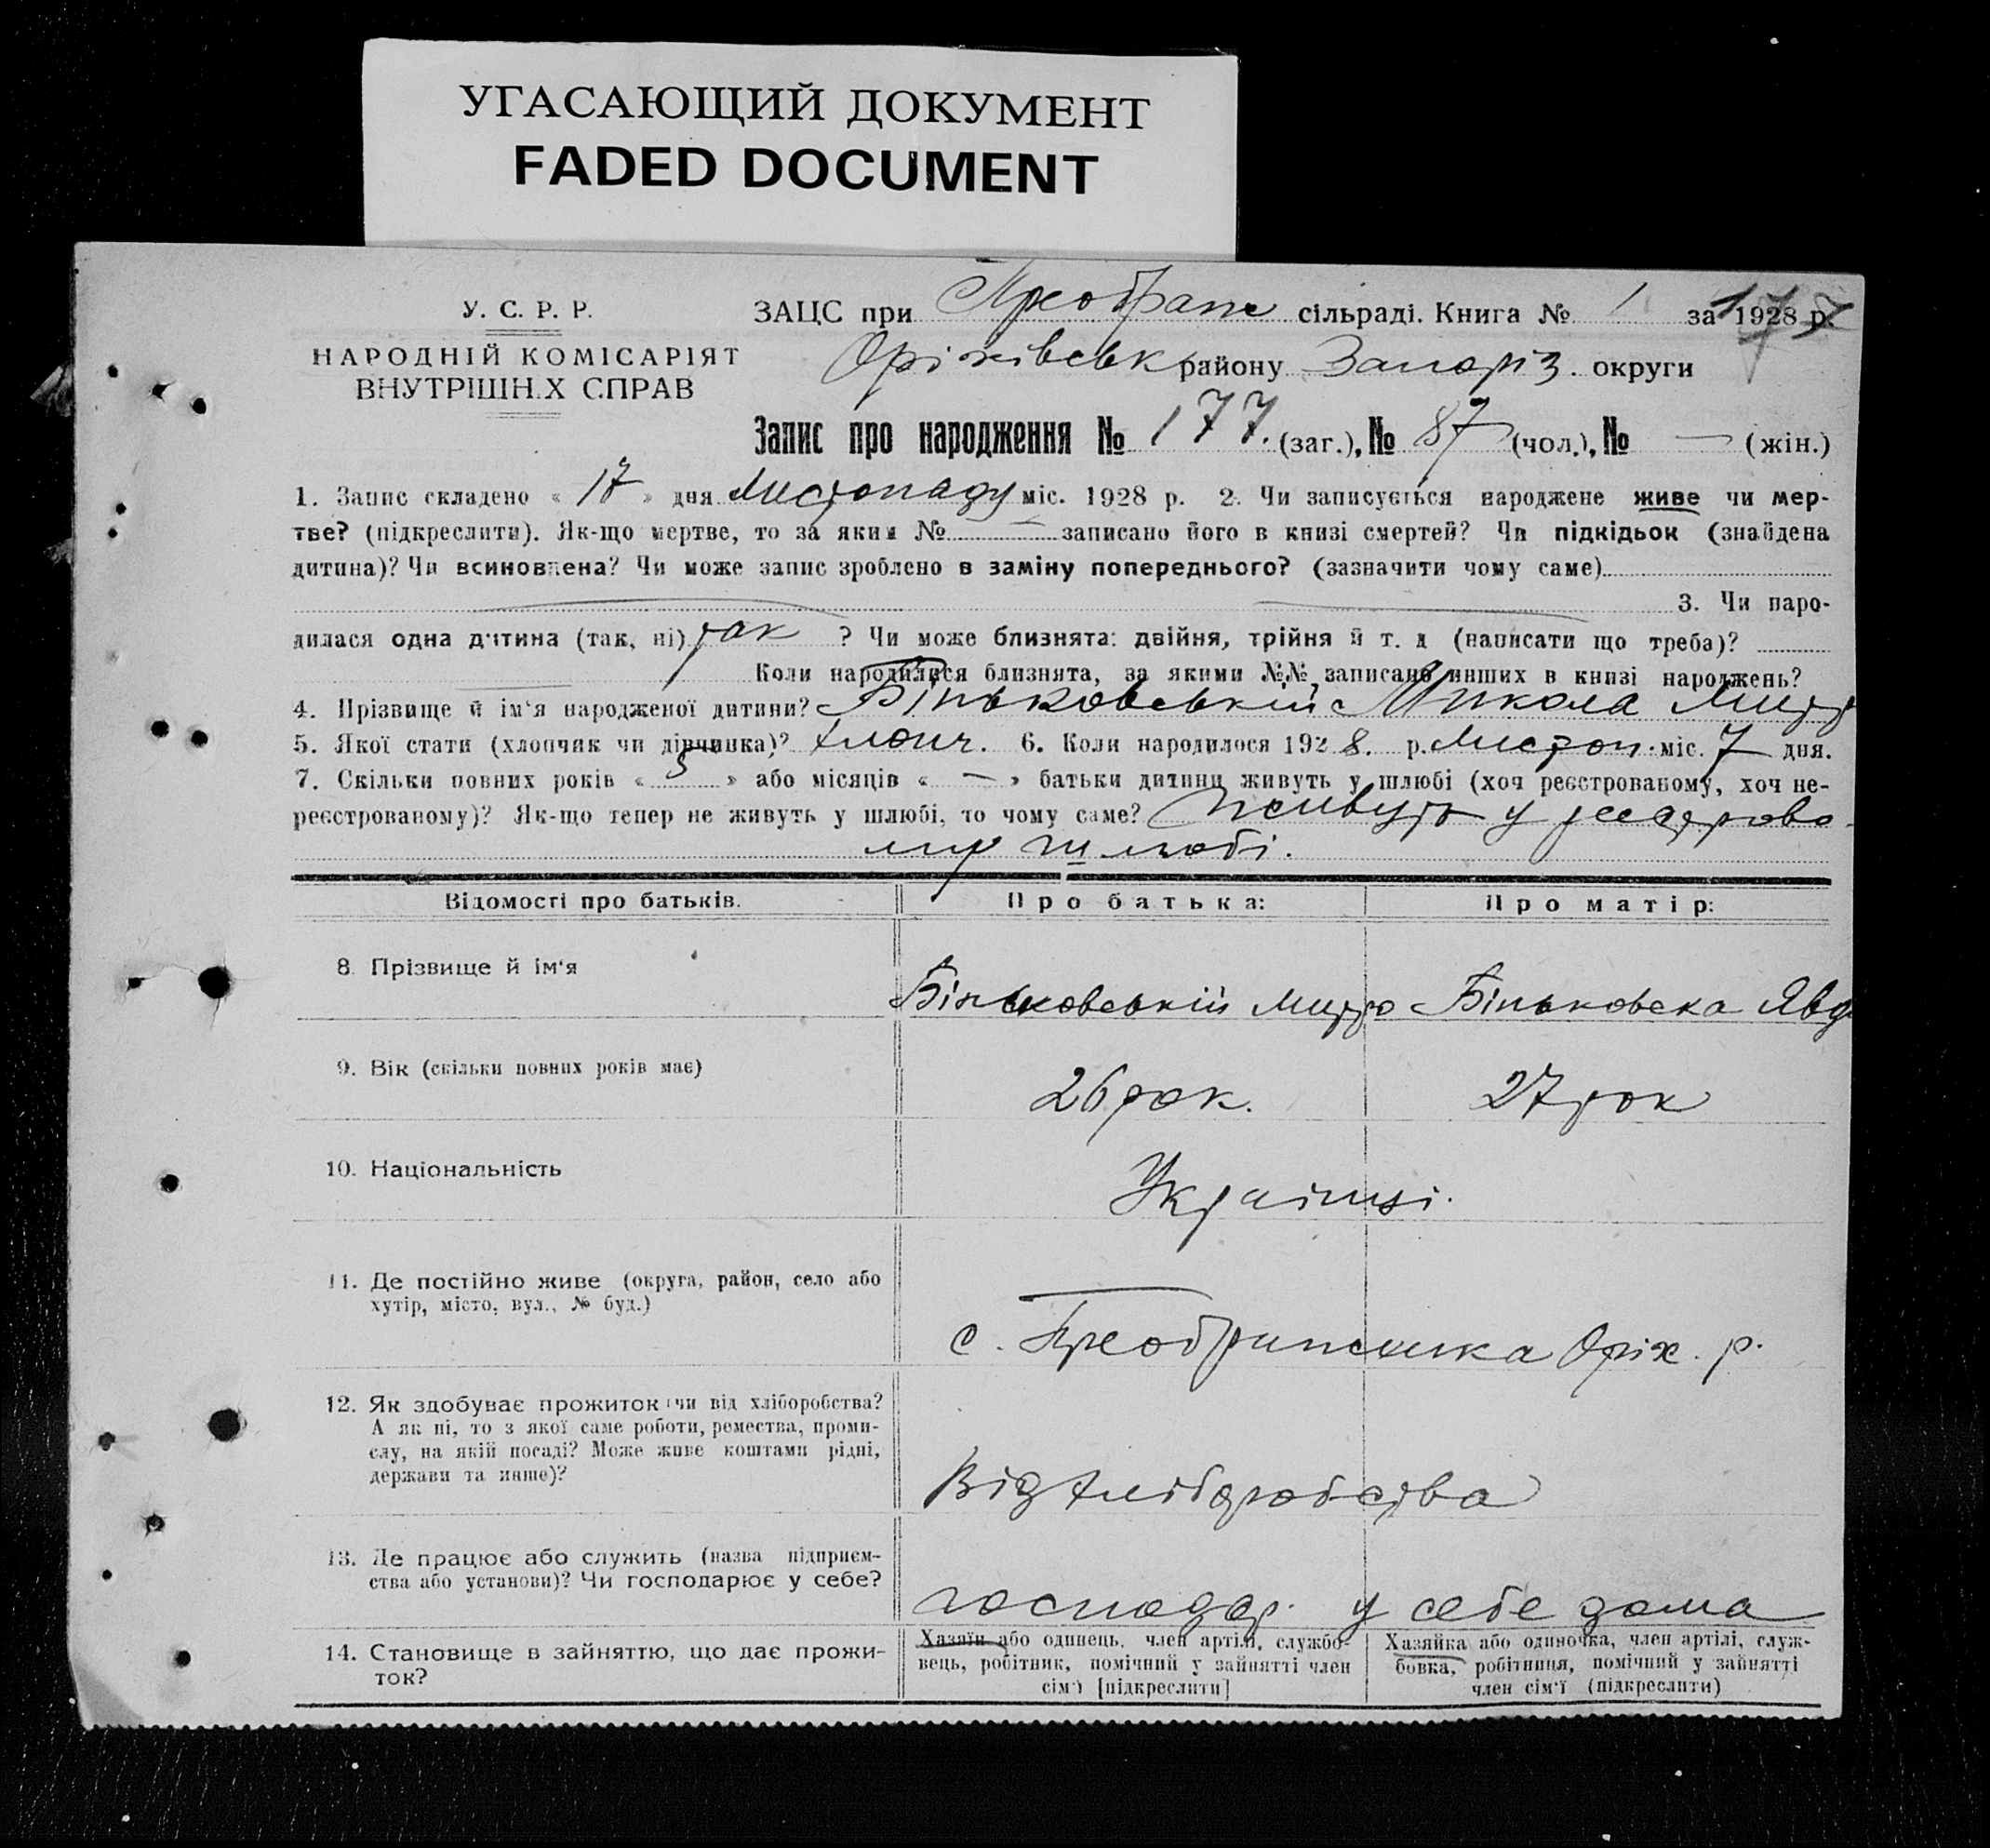 УГАСАЮЩИЙ ДОКУМЕНТ
FADED DOCUMENT
У. С. Р. Р.
НАРОДНІЙ КОМІСАРІЯТ
ВНУТРІШН.Х СПРАВ
ЗАЦС при Преображ сільраді. Книга № 1 за 1928 р.
Оріхівськ району Запоріз. округи
Запис про народження № 177. (заг.), № 87 (чол.), № — (жін.)
1. Запис складено « 17 » дня Листопаду міс. 1928 р. 2. Чи записується народжене живе чи мер-
тве? (підкреслити). Як-що мертве, то за яким № — записано його в книзі смертей? Чи підкідьок (знайдена
дитина)? Чи всиновлена? Чи може запис зроблено в заміну попереднього? (зазначити чому саме)
3. Чи наро-
дилася одна дитина (так, ні) так ? Чи може близнята: двійня, трійня й т. д (написати що треба)?
Коли народилися близнята, за якими №№ записано инших в книзі народжень?
4. Прізвище й ім'я народженої дитини? Біньковській Микола Митр
5. Якої стати (хлопчик чи дівчинка)? хлопч. 6. Коли народилося 1928. р. Листоп. міс. 7 дня.
7. Скільки повних років « 5 » або місяців « — » батьки дитини живуть у шлюбі (хоч реєстрованому, хоч не-
реєстрованому)? Як-що тепер не живуть у шлюбі, то чому саме? Живуть у реєстрова
му шлюбі.
Відомості про батьків. Про батька: Про матір:
8. Прізвище й ім'я
Біньковській Митро Біньковска Явд
9. Вік (скільки повних років має)
26 рок. 27 рок
10. Національність
Українці.
11. Де постійно живе (округа, район, село або
хутір, місто, вул., № буд.)
с. Преображенка Оріх. р.
12. Як здобуває прожиток (чи від хліборобства?
А як ні, то з якої саме роботи, ремества, проми-
слу, на якій посаді? Може живе коштами рідні,
держави та инше)?
Від хліборобства
13. Де працює або служить (назва підприєм-
ства або установи)? Чи господарює у себе?
господар. у себе дома
14. Становище в зайняттю, що дає прожи-
ток?
Хазяїн або одинець, член артілі, службо-
вець, робітник, помічний у зайнятті член
сім'ї [підкреслити]
Хазяйка або одиночка, член артілі, служ-
бовка, робітниця, помічний у зайнятті
член сім'ї (підкреслити)